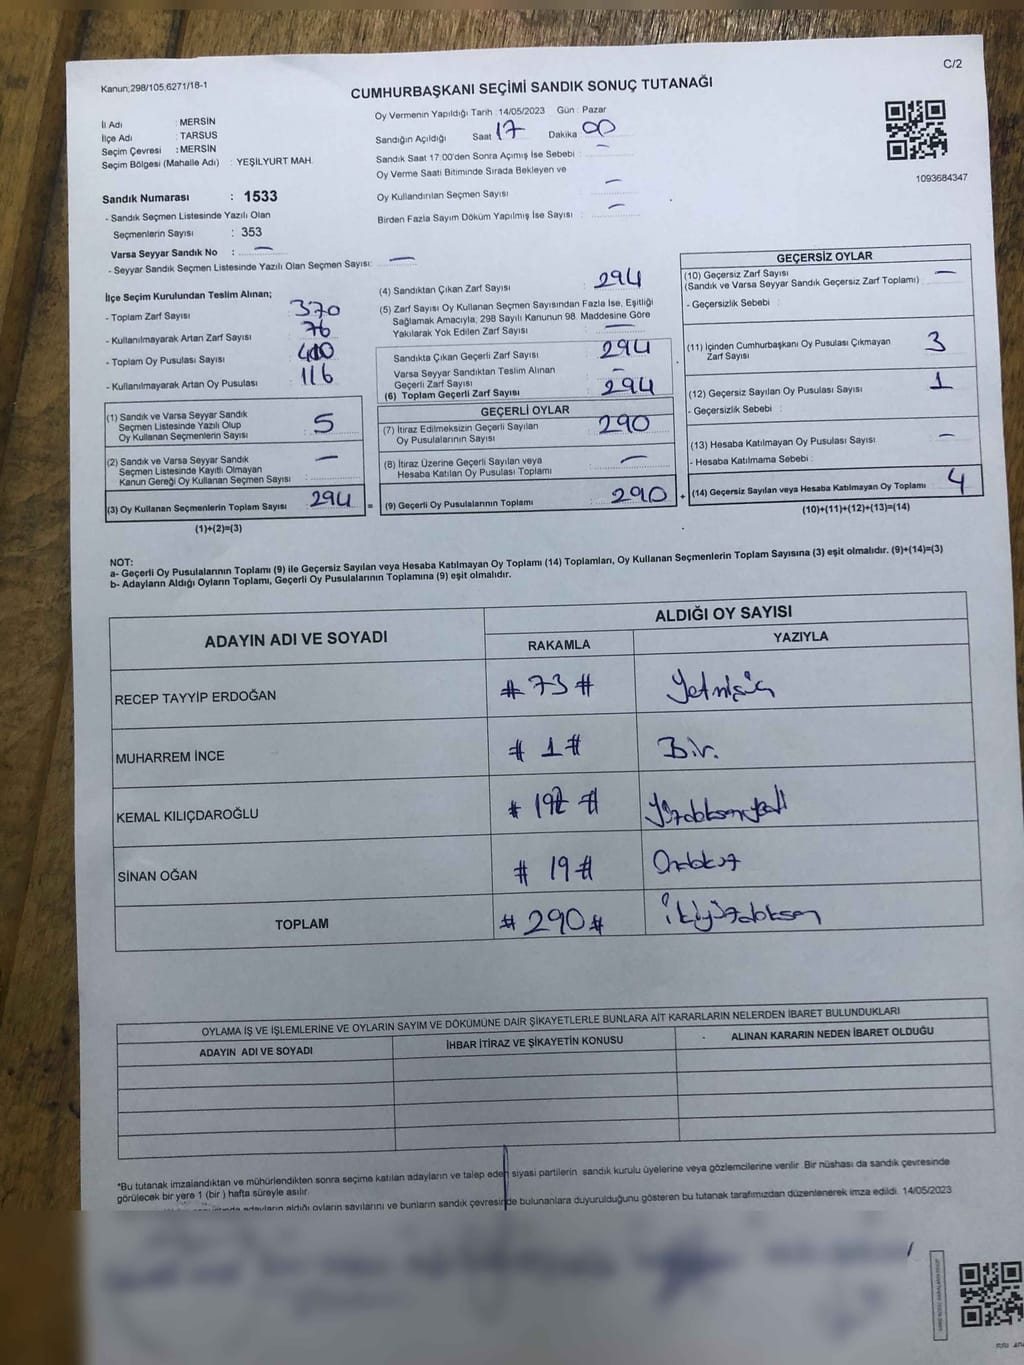 C/2
Kanun;298/105;6271/18-1
CUMHURBAŞKANI SEÇİMİ SANDIK SONUÇ TUTANAĞI
1093684347
İl Adı : MERSİN
İlçe Adı : TARSUS
Seçim Çevresi : MERSİN
Seçim Bölgesi (Mahalle Adı) : YEŞİLYURT MAH.
Oy Vermenin Yapıldığı Tarih : 14/05/2023 Gün : Pazar
Sandığın Açıldığı Saat 17 Dakika 00
Sandık Saat 17:00'den Sonra Açımış İse Sebebi : —
Oy Verme Saati Bitiminde Sırada Bekleyen ve
Oy Kullandırılan Seçmen Sayısı : —
Birden Fazla Sayım Döküm Yapılmış İse Sayısı : —
Sandık Numarası : 1533
- Sandık Seçmen Listesinde Yazılı Olan
Seçmenlerin Sayısı : 353
Varsa Seyyar Sandık No : —
- Seyyar Sandık Seçmen Listesinde Yazılı Olan Seçmen Sayısı: —
İlçe Seçim Kurulundan Teslim Alınan;
- Toplam Zarf Sayısı : 370
- Kullanılmayarak Artan Zarf Sayısı : 76
- Toplam Oy Pusulası Sayısı :
- Kullanılmayarak Artan Oy Pusulası : 116
(1) Sandık ve Varsa Seyyar Sandık
Seçmen Listesinde Yazılı Olup
Oy Kullanan Seçmenlerin Sayısı : 5
(2) Sandık ve Varsa Seyyar Sandık
Seçmen Listesinde Kayıtlı Olmayan
Kanun Gereği Oy Kullanan Seçmen Sayısı : —
(3) Oy Kullanan Seçmenlerin Toplam Sayısı : 294
(1)+(2)=(3)
(4) Sandıktan Çıkan Zarf Sayısı : 294
(5) Zarf Sayısı Oy Kullanan Seçmen Sayısından Fazla İse, Eşitliği
Sağlamak Amacıyla, 298 Sayılı Kanunun 98. Maddesine Göre
Yakılarak Yok Edilen Zarf Sayısı : —
Sandıkta Çıkan Geçerli Zarf Sayısı : 294
Varsa Seyyar Sandıktan Teslim Alınan
Geçerli Zarf Sayısı : —
(6) Toplam Geçerli Zarf Sayısı : 294
GEÇERLİ OYLAR
(7) İtiraz Edilmeksizin Geçerli Sayılan
Oy Pusulalarının Sayısı : 290
(8) İtiraz Üzerine Geçerli Sayılan veya
Hesaba Katılan Oy Pusulası Toplamı : —
= (9) Geçerli Oy Pusulalarının Toplamı : 290 +
GEÇERSİZ OYLAR
(10) Geçersiz Zarf Sayısı : —
(Sandık ve Varsa Seyyar Sandık Geçersiz Zarf Toplamı)
- Geçersizlik Sebebi :
(11) İçinden Cumhurbaşkanı Oy Pusulası Çıkmayan
Zarf Sayısı : 3
(12) Geçersiz Sayılan Oy Pusulası Sayısı : 1
- Geçersizlik Sebebi :
(13) Hesaba Katılmayan Oy Pusulası Sayısı : —
- Hesaba Katılmama Sebebi :
(14) Geçersiz Sayılan veya Hesaba Katılmayan Oy Toplamı : 4
(10)+(11)+(12)+(13)=(14)
NOT:
a- Geçerli Oy Pusulalarının Toplamı (9) ile Geçersiz Sayılan veya Hesaba Katılmayan Oy Toplamı (14) Toplamları, Oy Kullanan Seçmenlerin Toplam Sayısına (3) eşit olmalıdır. (9)+(14)=(3)
b- Adayların Aldığı Oyların Toplamı, Geçerli Oy Pusulalarının Toplamına (9) eşit olmalıdır.
ADAYIN ADI VE SOYADI
ALDIĞI OY SAYISI
RAKAMLA YAZIYLA
RECEP TAYYİP ERDOĞAN # 73 # Yetmişüç
MUHARREM İNCE # 1 # Bir.
KEMAL KILIÇDAROĞLU
SİNAN OĞAN # 19 # Ondokuz
TOPLAM # 290 # İkiyüzdoksan
OYLAMA İŞ VE İŞLEMLERİNE VE OYLARIN SAYIM VE DÖKÜMÜNE DAİR ŞİKAYETLERLE BUNLARA AİT KARARLARIN NELERDEN İBARET BULUNDUKLARI
ADAYIN ADI VE SOYADI İHBAR İTİRAZ VE ŞİKAYETİN KONUSU ALINAN KARARIN NEDEN İBARET OLDUĞU
*Bu tutanak imzalandıktan ve mühürlendikten sonra seçime katılan adayların ve talep eden siyasi partilerin sandık kurulu üyelerine veya gözlemcilerine verilir. Bir nüshası da sandık çevresinde
görülecek bir yere 1 (bir ) hafta süreyle asılır.
adayların aldığı oyların sayılarını ve bunların sandık çevresinde bulunanlara duyurulduğunu gösteren bu tutanak tarafımızdan düzenlenerek imza edildi. 14/05/2023